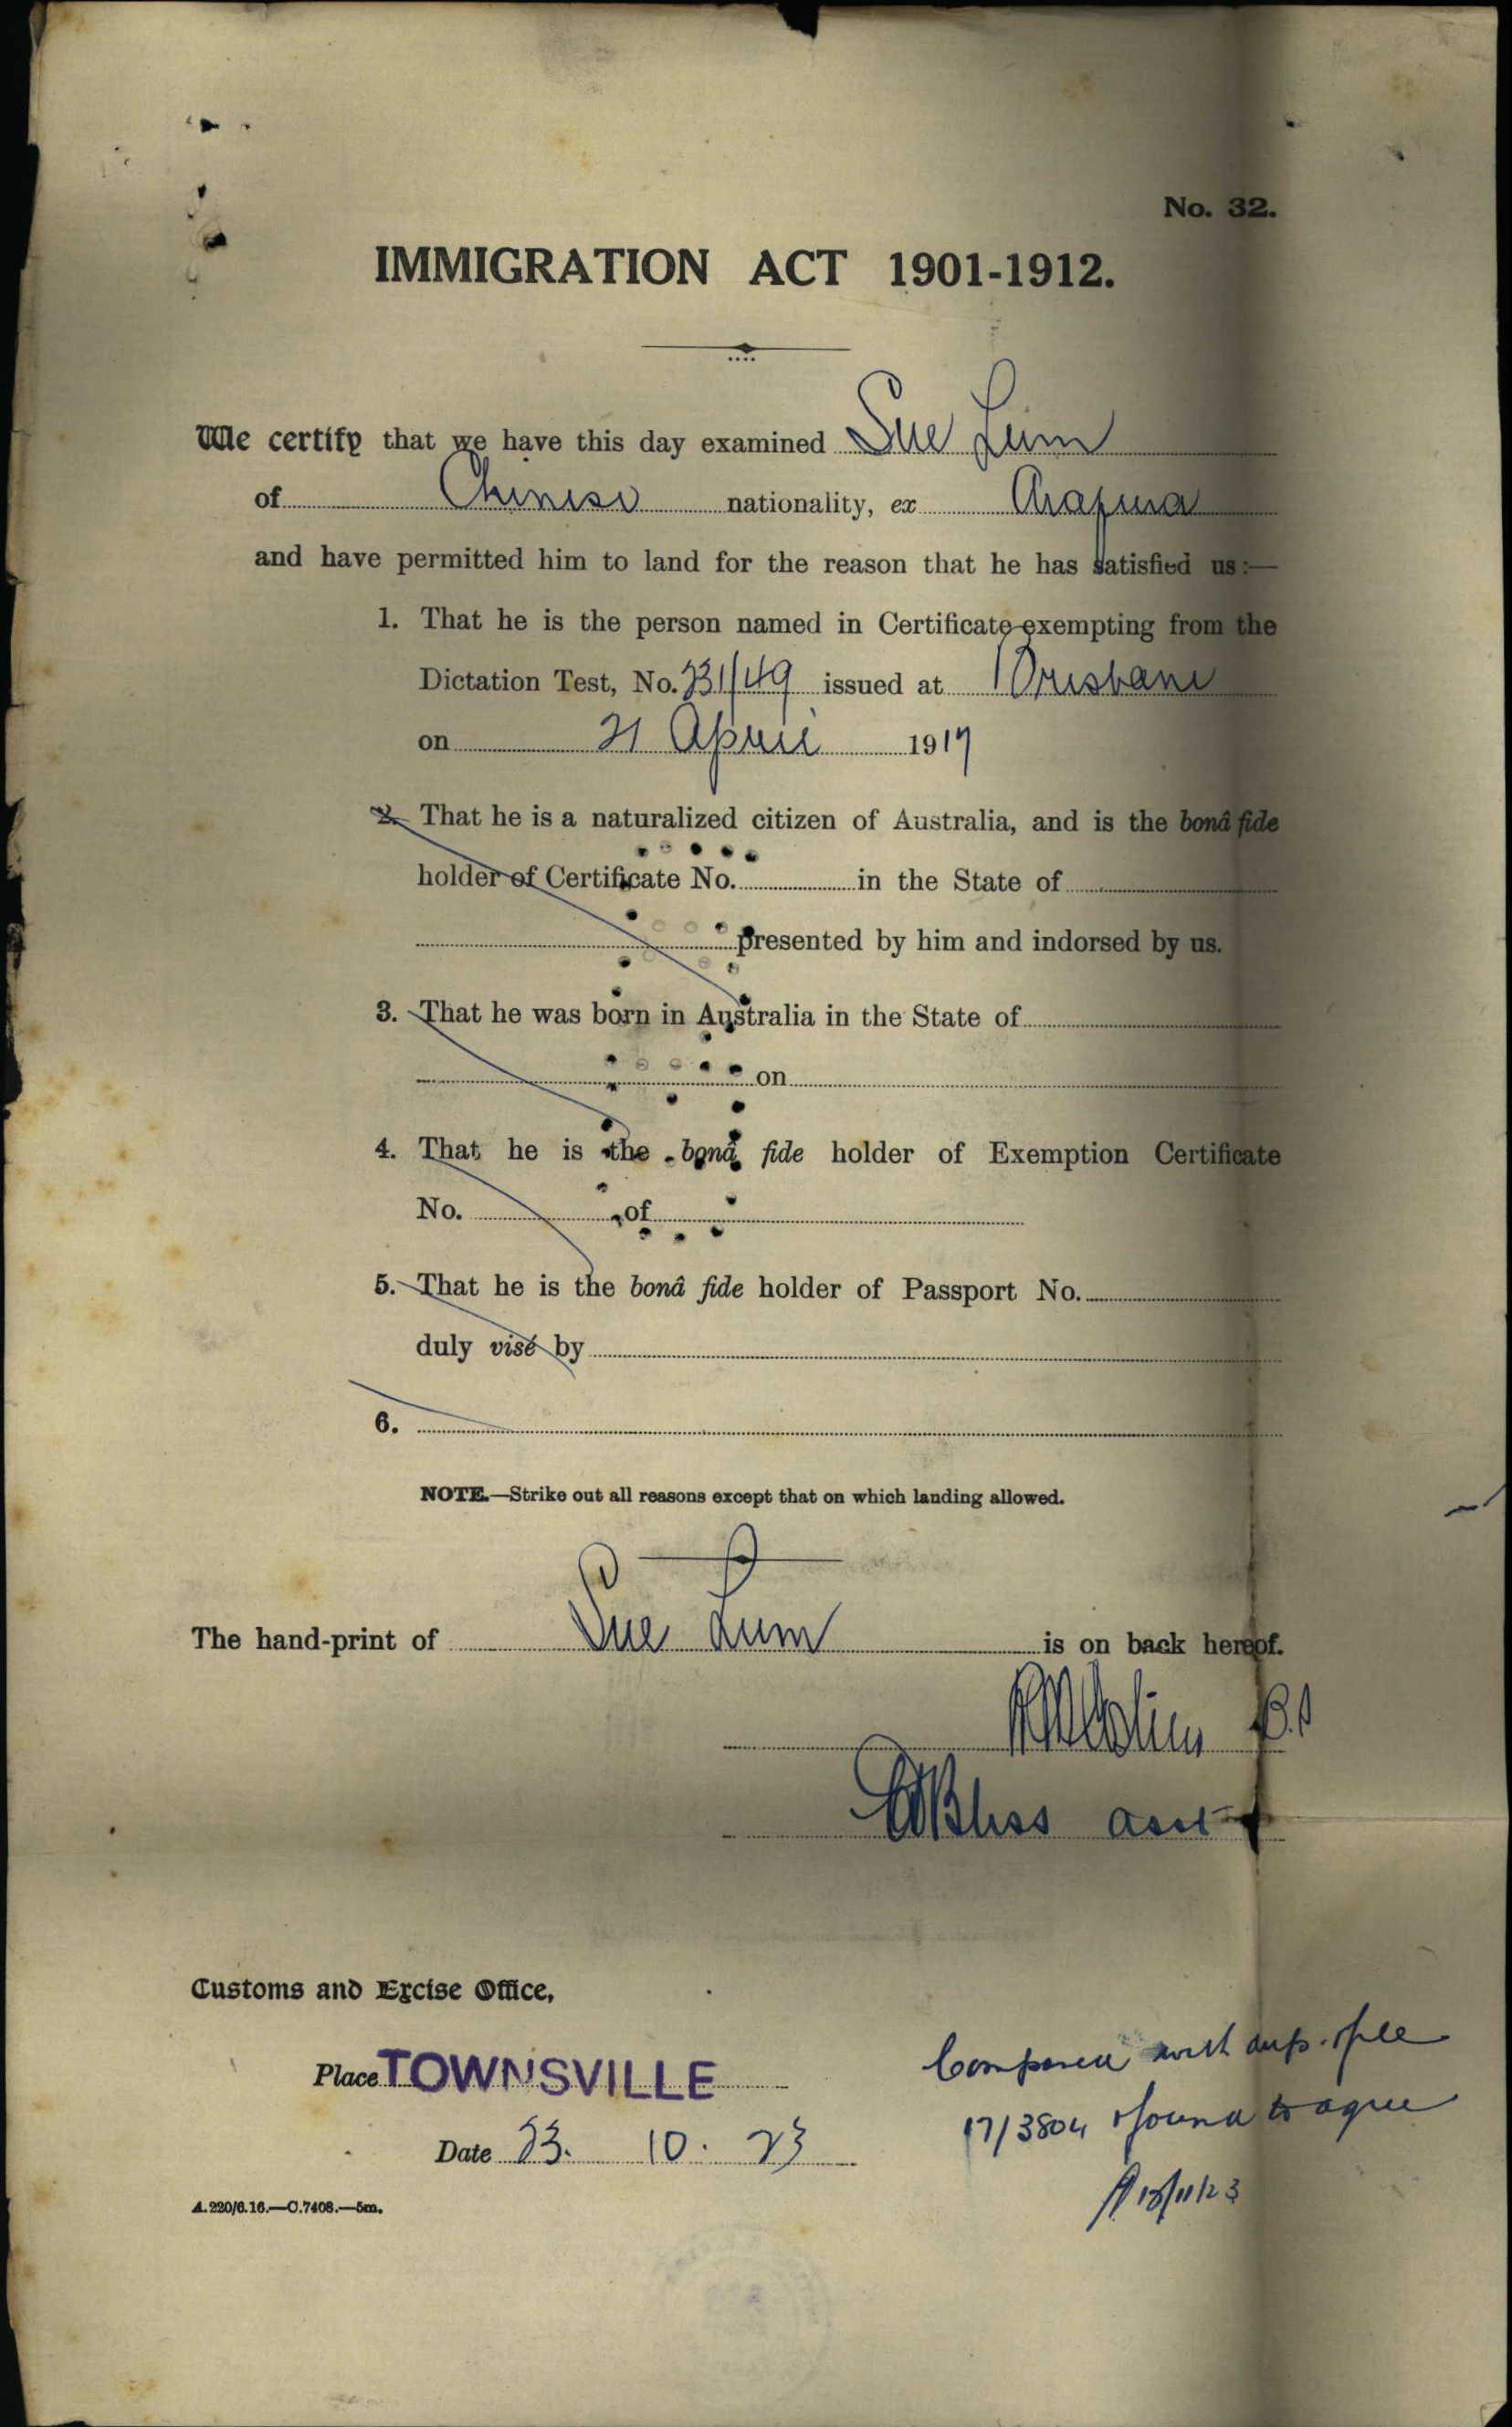 No. 32.
IMMIGRATION ACT 1901-1912.
We certify that we have this day examined Sue Lum
of Chinese nationality, ex Arafura
and have permitted him to land for the reason that he has satisfied us:—
1. That he is the person named in Certificate exempting from the
Dictation Test, No. 231/49 issued at Brisbane
on 21 April 1917
2. That he is a naturalized citizen of Australia, and is the bonâ fide
holder of Certificate No. in the State of
presented by him and indorsed by us.
3. That he was born in Australia in the State of
on
4. That he is the bonâ fide holder of Exemption Certificate
No. of
5. That he is the bonâ fide holder of Passport No.
duly visé by
6.
NOTE.—Strike out all reasons except that on which landing allowed.
The hand-print of Sue Lum is on back hereof.
Bliss asst
Customs and Excise Office,
Place TOWNSVILLE
Date 23. 10. 23
Compared with dup. file
17/3804 & found to agree
13/11/23
A.220/6.16.—C.7408.—5m.